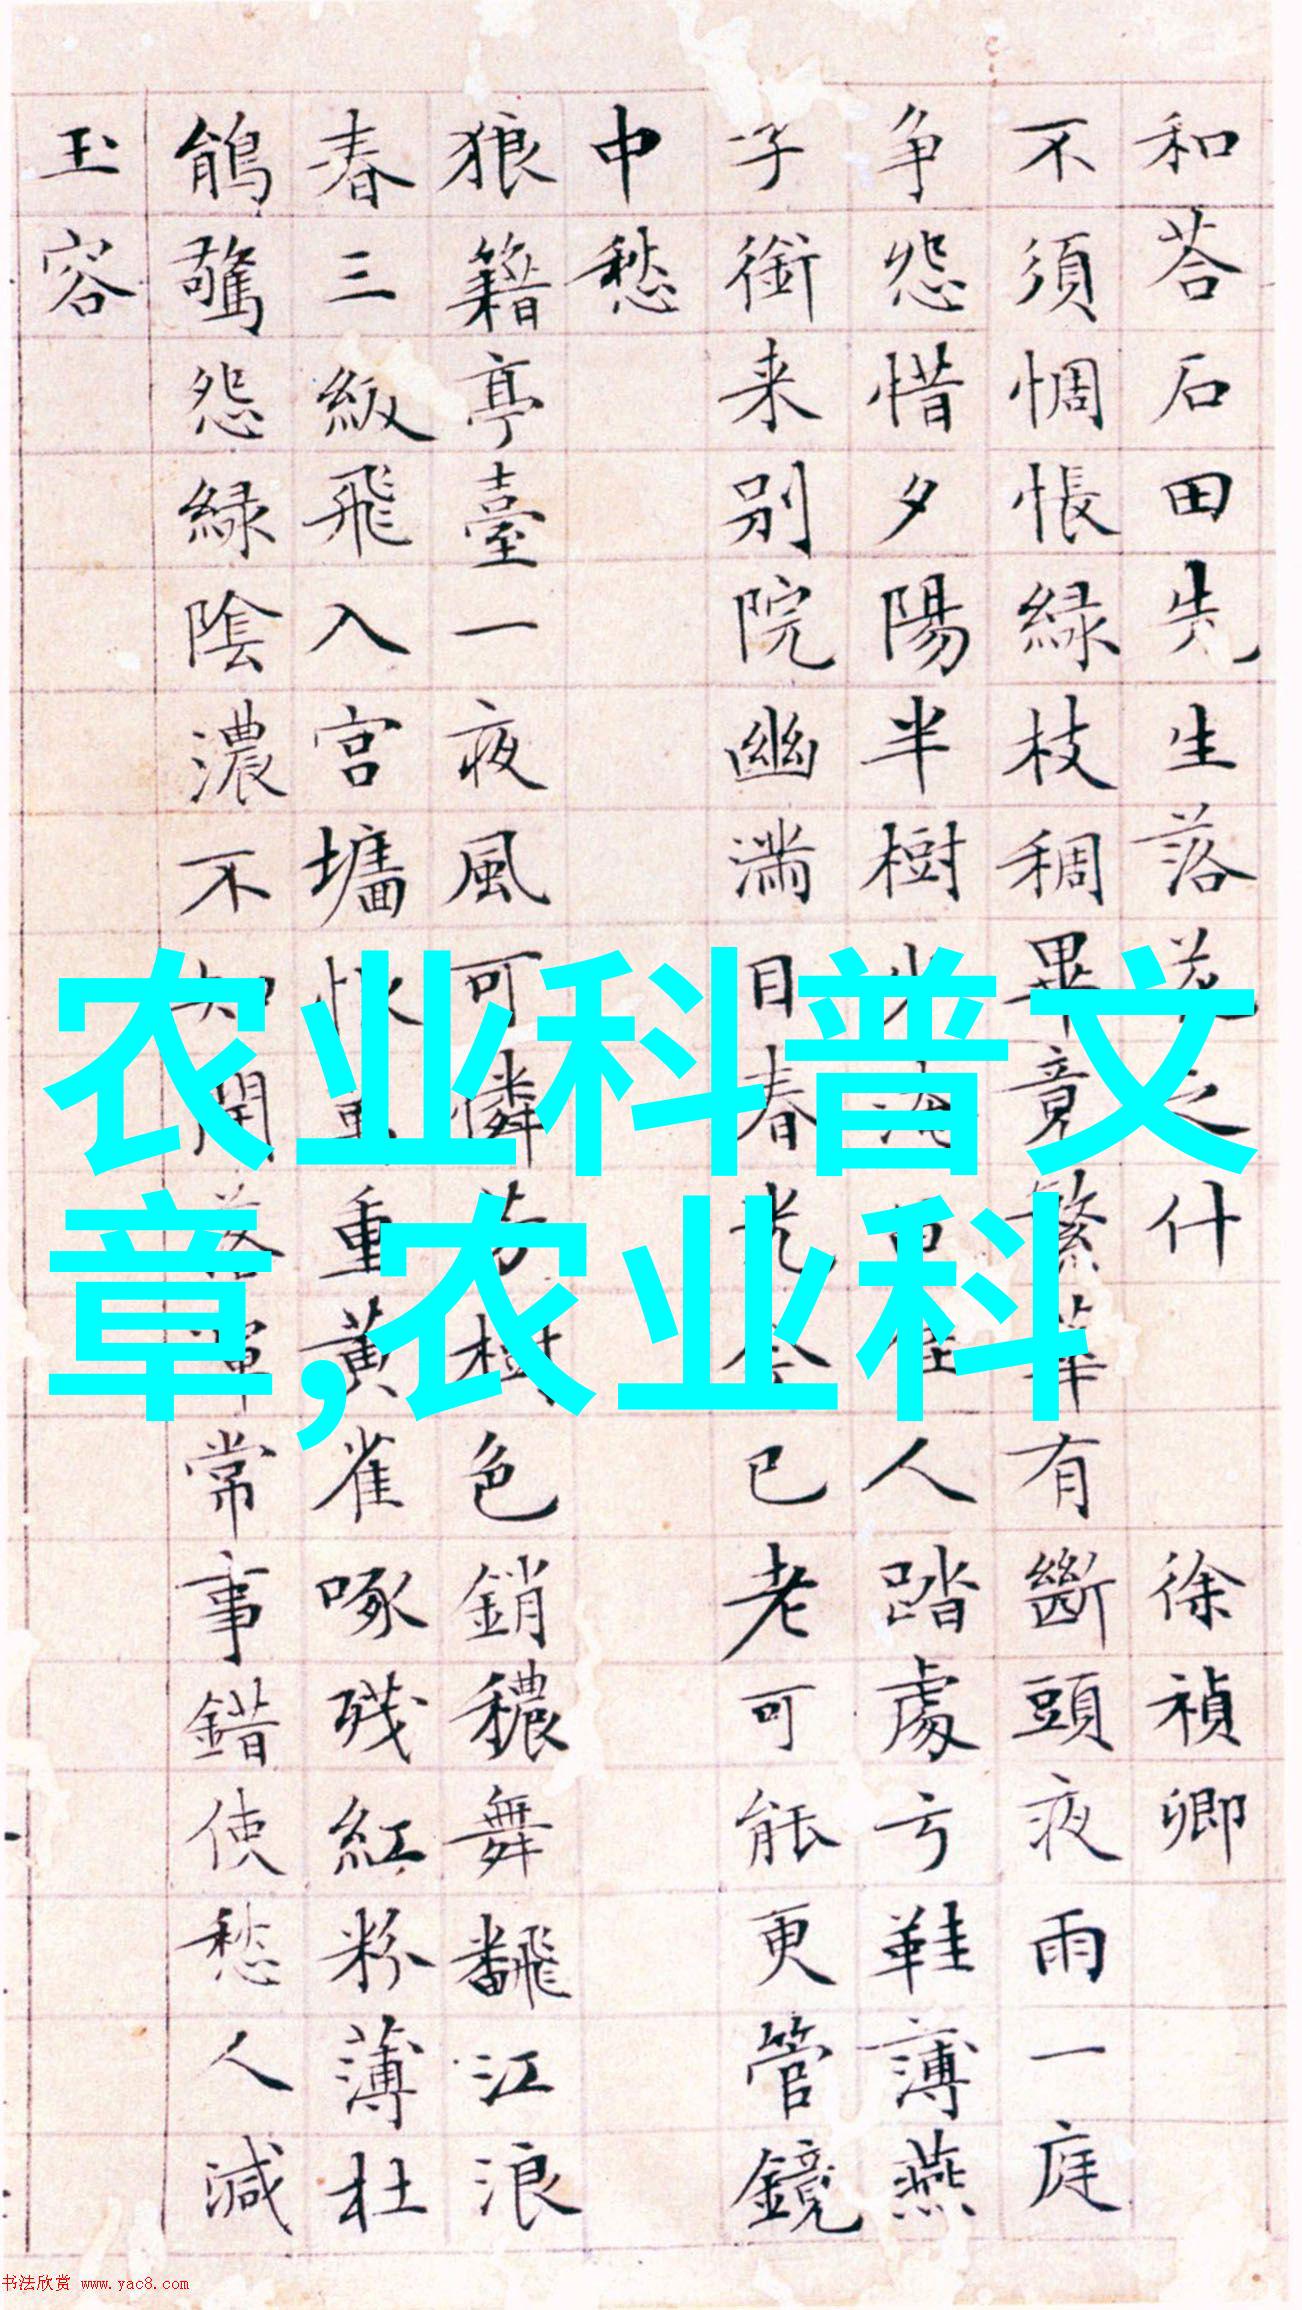 和荅石田先生落花之什 徐禎卿
不須惆悵緑枝稠畢竟繁華有斷頭夜雨一庭
争怨惜夕陽半樹佳人踏處弓鞋薄燕
子銜来别院幽满目春光今已老可能更管鏡
中愁
狼籍亭臺一夜風可憐芳樹色銷穠舞飜江浪
春三級飛入宫墻恨重重黄雀啄殘紅粉薄杜
鵑驚怨緑陰濃不知開落渾常事錯使愁人減
玉容
农业科普文
章,农业科
书法欣赏 www.yac8.com